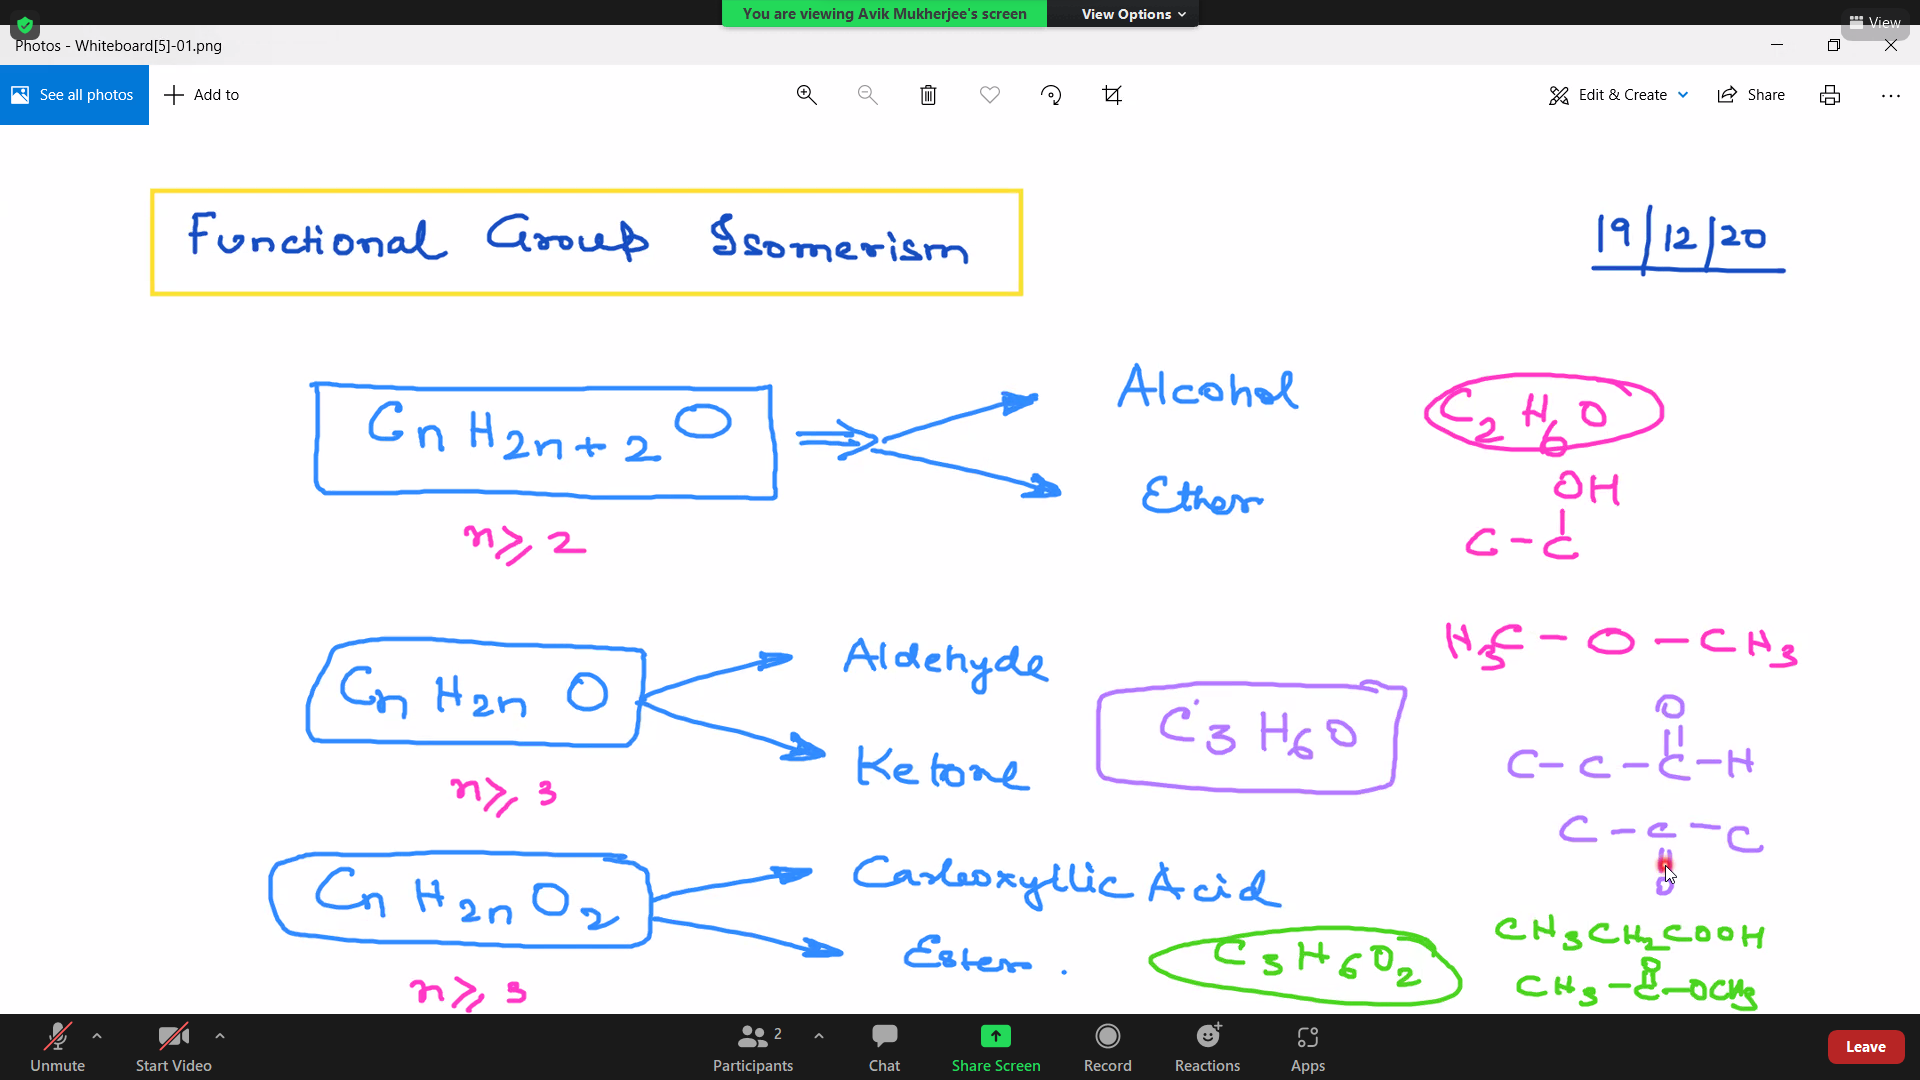 You are viewing Avik Mukherjee's screen View Options
View
Photos - Whiteboard[5]-01.png
See all photos Add to Edit & Create Share
Functional Group Isomerism
19/12/20
CnH2n+2O ⇒ Alcohol
Ether
n ⩾ 2
C2H6O
OH
C - C
H3C - O - CH3
CnH2nO Aldehyde
Ketone
n ⩾ 3
C3H6O
O
C - C - C - H
C - C - C
O
CnH2nO2 Carboxyllic Acid
Ester.
n ⩾ 3
C3H6O2
CH3CH2COOH
O
CH3 - C - OCH3
2
Unmute Start Video Participants Chat Share Screen Record Reactions Apps Leave